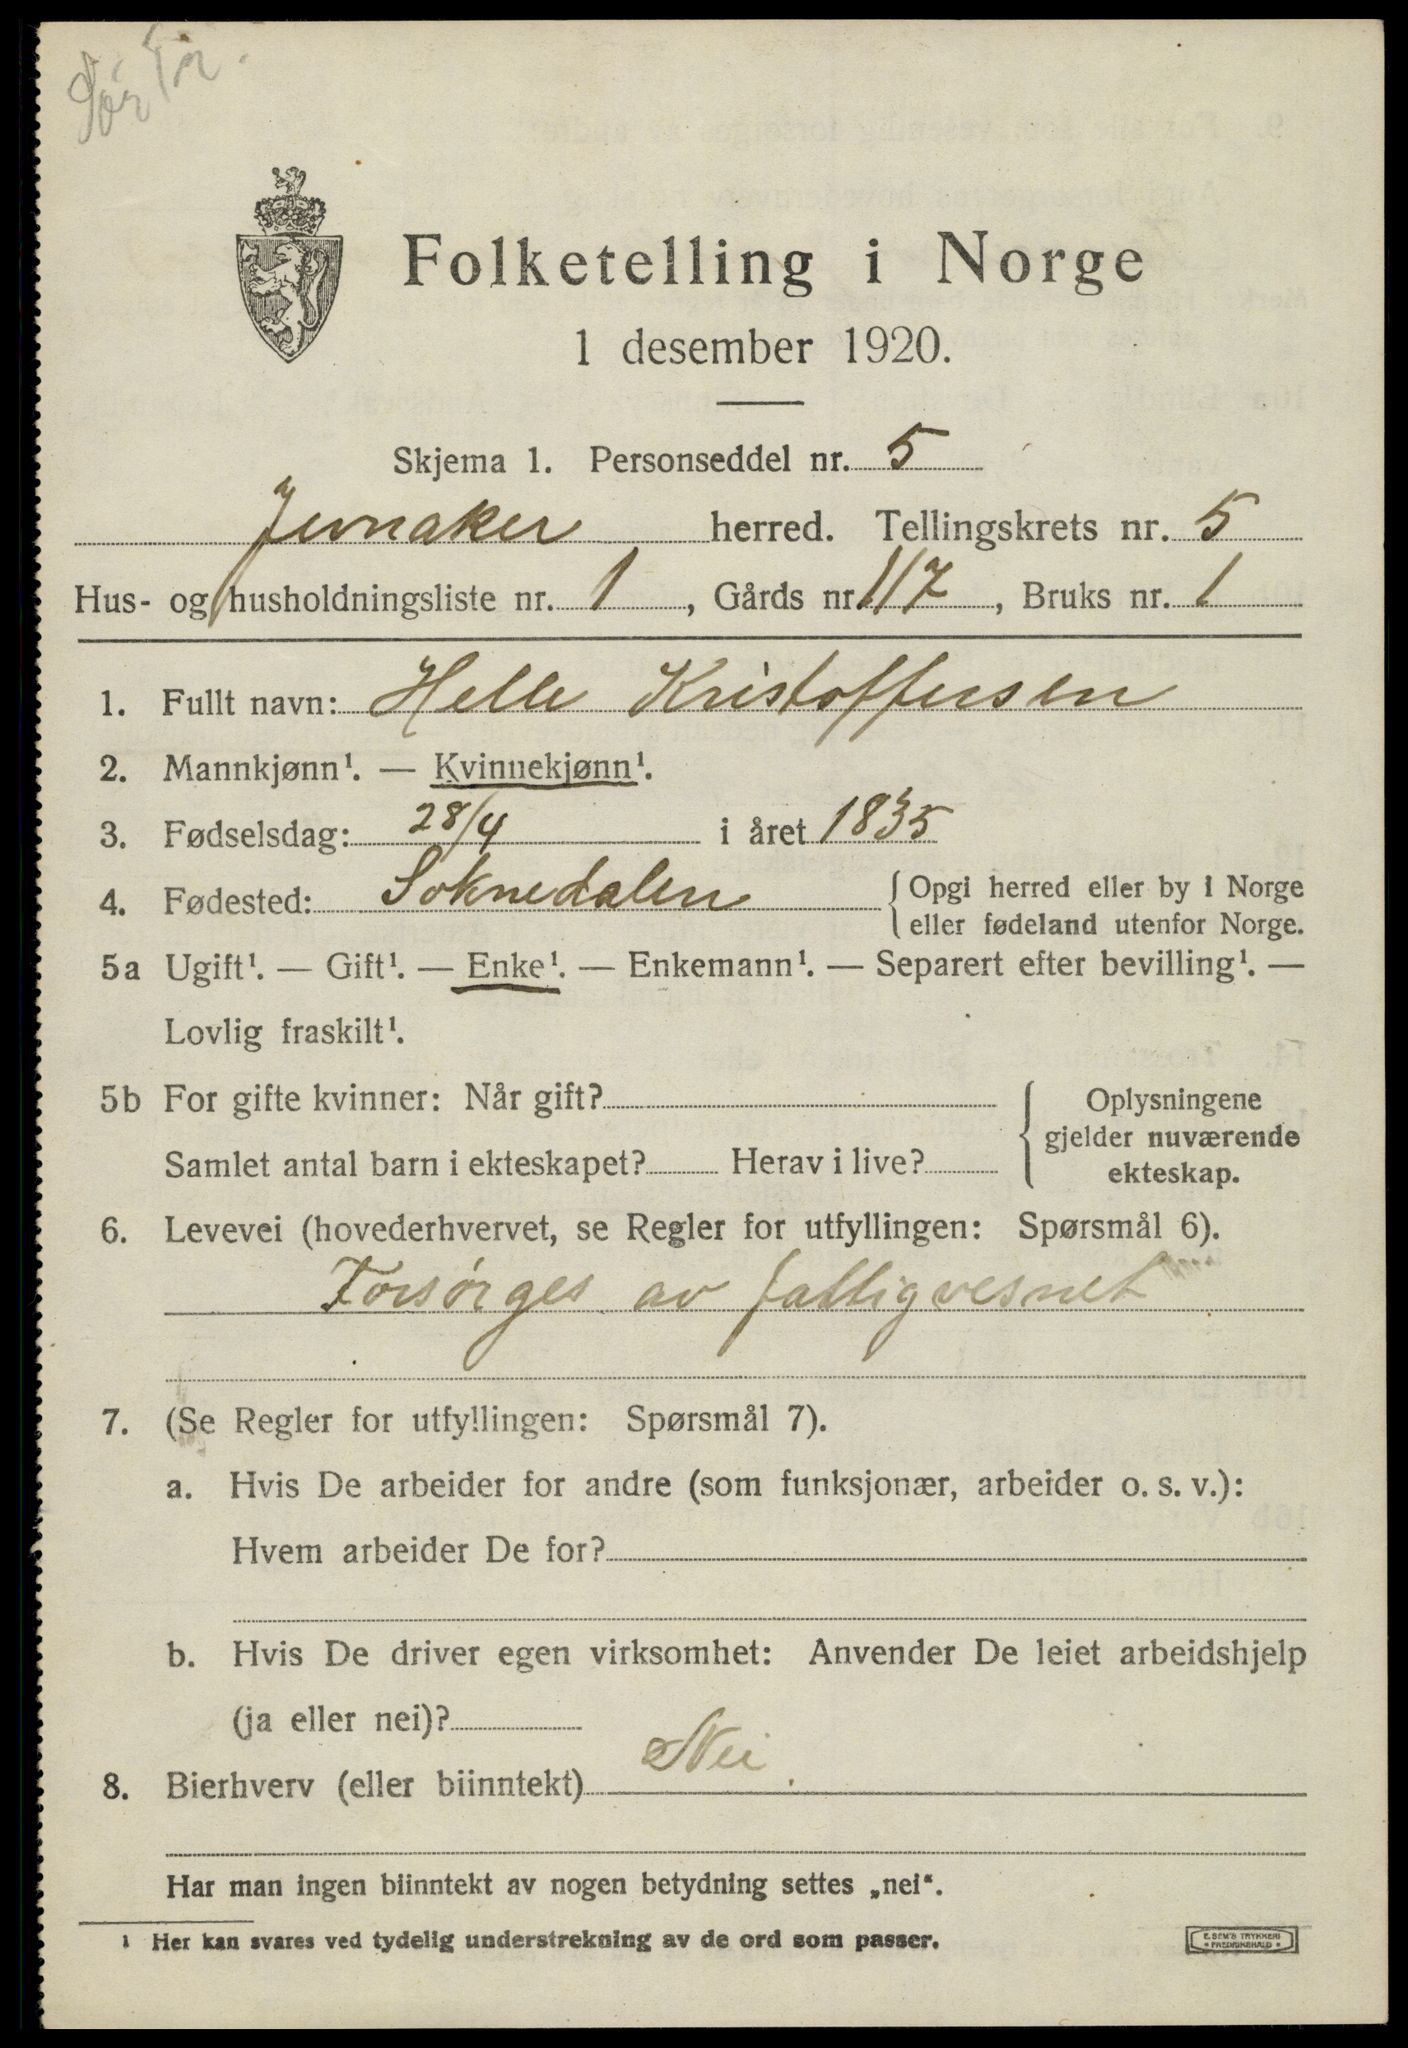 Sør Tr.
Folketelling i Norge
1 desember 1920.
Skjema 1. Personseddel nr. 5
Jevnaker herred. Tellingskrets nr. 5
Hus- og husholdningsliste nr. 1, Gårds nr. 117, Bruks nr. 1
1. Fullt navn: Helle Kristoffersen
2. Mannkjønn¹. — Kvinnekjønn¹.
3. Fødselsdag: 28/4 i året 1835
4. Fødested: Soknedalen {Opgi herred eller by i Norge
eller fødeland utenfor Norge.
5a Ugift¹. — Gift¹. — Enke¹. — Enkemann¹. — Separert efter bevilling¹. —
Lovlig fraskilt¹.
5b For gifte kvinner: Når gift?
Samlet antal barn i ekteskapet? Herav i live?
Oplysningene
gjelder nuværende
ekteskap.
6. Levevei (hovederhvervet, se Regler for utfyllingen: Spørsmål 6).
Forsørges av fattigvesnet
7. (Se Regler for utfyllingen: Spørsmål 7).
a. Hvis De arbeider for andre (som funksjonær, arbeider o. s. v.):
Hvem arbeider De for?
b. Hvis De driver egen virksomhet: Anvender De leiet arbeidshjelp
(ja eller nei)?
8. Bierhverv (eller biinntekt) Nei.
Har man ingen biinntekt av nogen betydning settes „nei“.
¹ Her kan svares ved tydelig understrekning av de ord som passer.
E. SEM'S TRYKKERI
FREDRIKSHALD